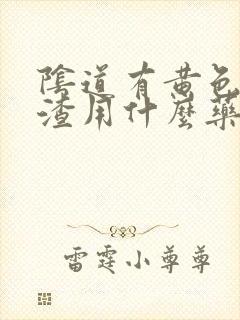 陰道有黄色
渣用什麼藥
雷霆小尊尊